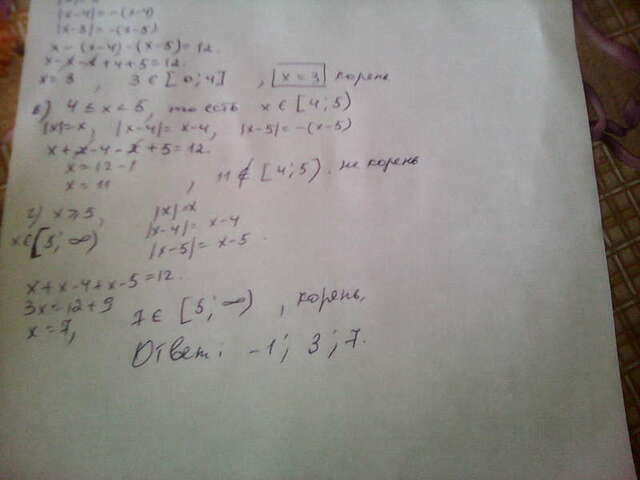 |x-4| = -(x-4)
|x-5| = -(x-5)
x-(x-4)-(x-5)=12.
x-x-x+4+5=12.
x=3, 3 ∈ [0;4], x=3 корень
в) 4 ≤ x < 5, то есть x ∈ [4;5)
|x|=x, |x-4|=x-4, |x-5|=-(x-5)
x+x-4-x+5=12.
x=12-1
x=11, 11 ∉ [4;5). не корень
г) x ≥ 5, |x|=x
x∈[5;∞) |x-4|= x-4
|x-5|= x-5
x+x-4+x-5=12.
3x=12+9
x=7, 7 ∈ [5;∞), корень,
Ответ: -1; 3; 7.